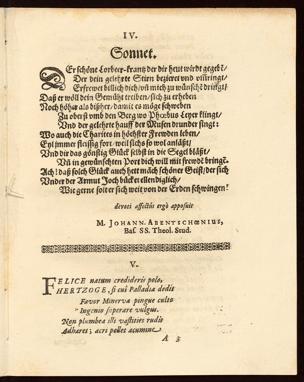 IV.
Sonnet.
DEr schöne Lorbeer-krantz der dir heut wirdt gegebē/
Der dein gelehrte Stirn bezieret vnd vmringt/
Erfrewet billich dich/ vñ mich zu wünschē dringt/
Daß er wöll dein Gemüht treiben/ sich zu erheben
Noch höher als bißher/ damit es möge schweben
Zu oberst vmb den Berg wo Phœbus Leyer klingt/
Vnd der gelehrte hauff der Musen drunder singt:
Wo auch die Charites in höchster Frewden leben/
Eyl immer fleissig fort/ weil sichs so wol anläßt/
Vnd dir das günstig Glück selbst in die Segel bläßt/
Vñ in gewünschten Port dich will mit frewdē bringē.
Ach! daß solch Glück auch hett mich schönē Geist/ der sich
Vnder der Armut Joch bücket ellendiglich/
Wie gerne solt er sich weit von der Erden schwingen!
devoti affectûs ergò apposuit
M. JOHANN. ABENTSCHŒNIUS,
Bas. SS. Theol. Stud.
V.
FELICE natum crediderîs polo,
HERTZOGE, si cui Palladia dedit
Favor Minerva pingue culto
Ingenio superare vulgus.
Non plumbea illi vastities rudis
Adhæret; acri pollet acumine
A 3